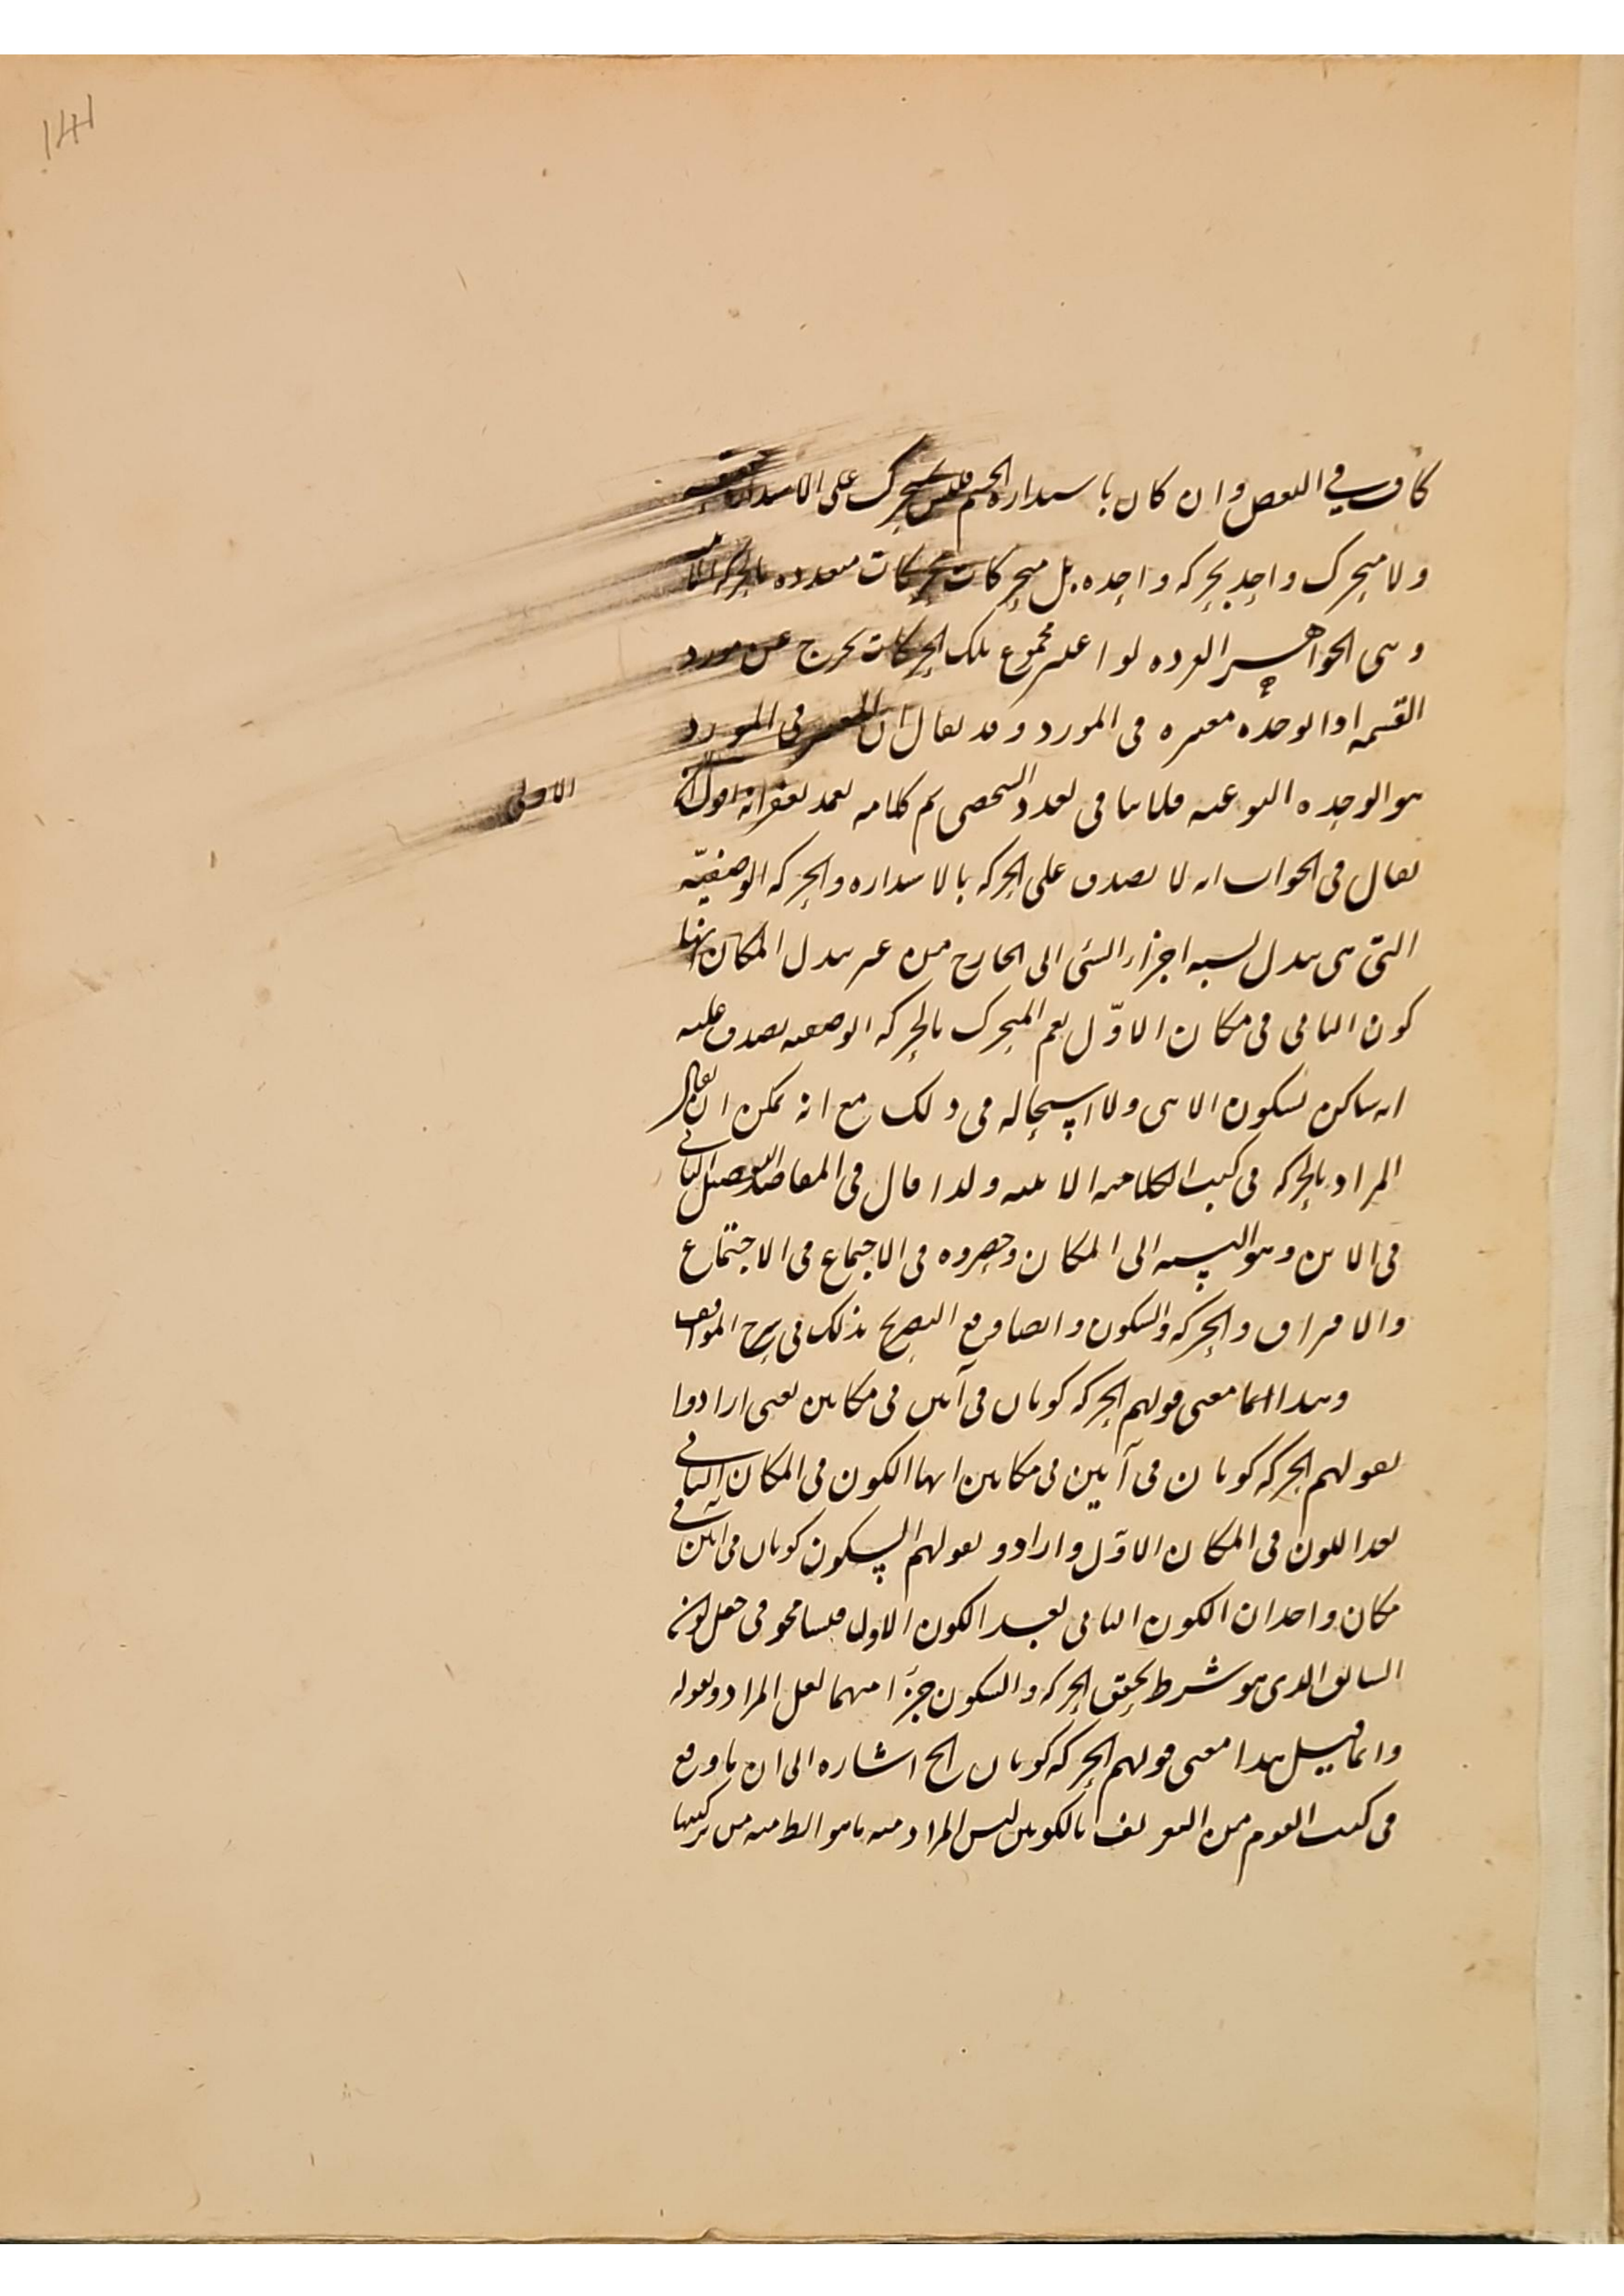 141
كاف في النقض وان كان باستداره الجسم فليس بمتحرك على الاستدارة حقيقة
ولا متحرك واحد بحركه واحده بل متحركات بحركات متعدده بالحركة الاينية
وهي الجواهر الفرده لو اعتبر مجموع تلك الحركات تخرج عن مورد
القسمه اذ الوحده معتبره في المورد وقد يقال ان المعتبر في المورد
هو الوحده النوعيه فلا ينافي تعدد الشخصي تم كلامه
الاولى
يقال في الجواب انه لا يصدق على الحركه بالاستداره والحركه الوضعيّه
التي هي تبدل نسبه اجزاء الشئ الى الخارج من غير تبدل المكان انها
كون الثاني في مكان الاوّل نعم المتحرك بالحركه الوضعيه يصدق عليه
انه ساكن بسكون الايني ولا استحاله في ذلك مع انه يمكن ان يقال
المراد بالحركه في كتب الكلاميه الاينيه ولذا قال في المقاصد الفصل الثاني
في الاين وهو النسبه الى المكان وحصروه في الاجتماع في الاجتماع
والافتراق والحركه والسكون وايضا وقع التصريح بذلك في شرح المواقف
وهذا انما معنى قولهم الحركه كونان في آنين في مكانين يعني ارادوا
بقولهم الحركه كونان في آنين في مكانين انها الكون في المكان الثاني
بعد الكون في المكان الاوّل وارادو بقولهم السكون كونان في آنين في
مكان واحد ان الكون الثاني بعد الكون الاول فتسامحو في جعل كونه
السابق الذي هو شرط تحقق الحركه والسكون جزءًا منهما لعل المراد وبقوله
وانما قيل هذا معنى قولهم الحركه كونان الخ اشاره الى ان ما وقع
في كتب القوم من التعريف بالكونين ليس المراد منه ما هو الظ منه من تركيبها